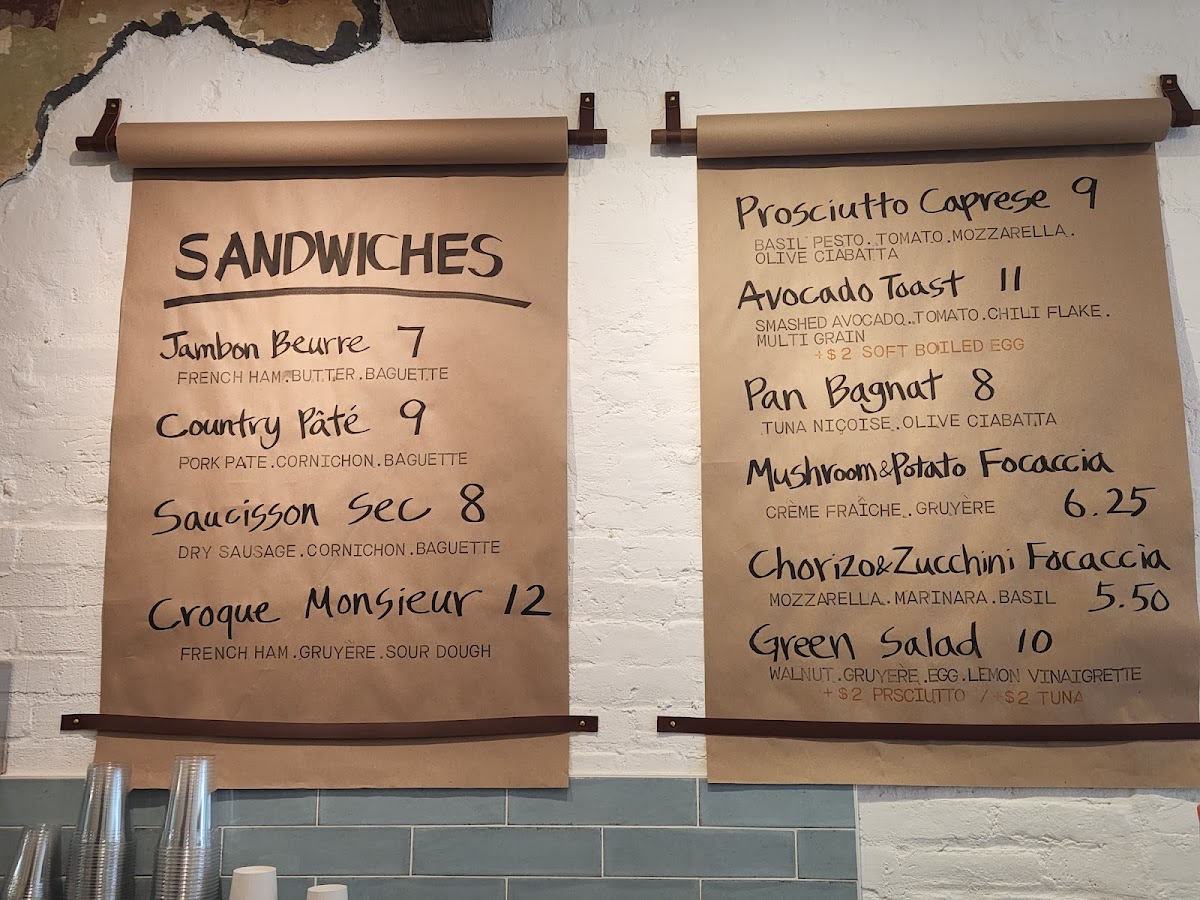 SANDWICHES
Jambon Beurre 7
FRENCH HAM.BUTTER.BAGUETTE
Country Pâté 9
PORK PATE.CORNICHON.BAGUETTE
Saucisson Sec 8
DRY SAUSAGE.CORNICHON.BAGUETTE
Croque Monsieur 12
FRENCH HAM.GRUYÈRE.SOUR DOUGH
Prosciutto Caprese 9
BASIL PESTO.TOMATO.MOZZARELLA.
OLIVE CIABATTA
Avocado Toast 11
SMASHED AVOCADO.TOMATO.CHILI FLAKE.
MULTI GRAIN
+$2 SOFT BOILED EGG
Pan Bagnat 8
TUNA NIÇOISE.OLIVE CIABATTA
Mushroom&Potato Focaccia
CRÈME FRAÎCHE.GRUYÈRE 6.25
Chorizo&Zucchini Focaccia
MOZZARELLA.MARINARA.BASIL 5.50
Green Salad 10
WALNUT.GRUYERE.EGG.LEMON VINAIGRETTE
+$2 PRSCIUTTO / +$2 TUNA